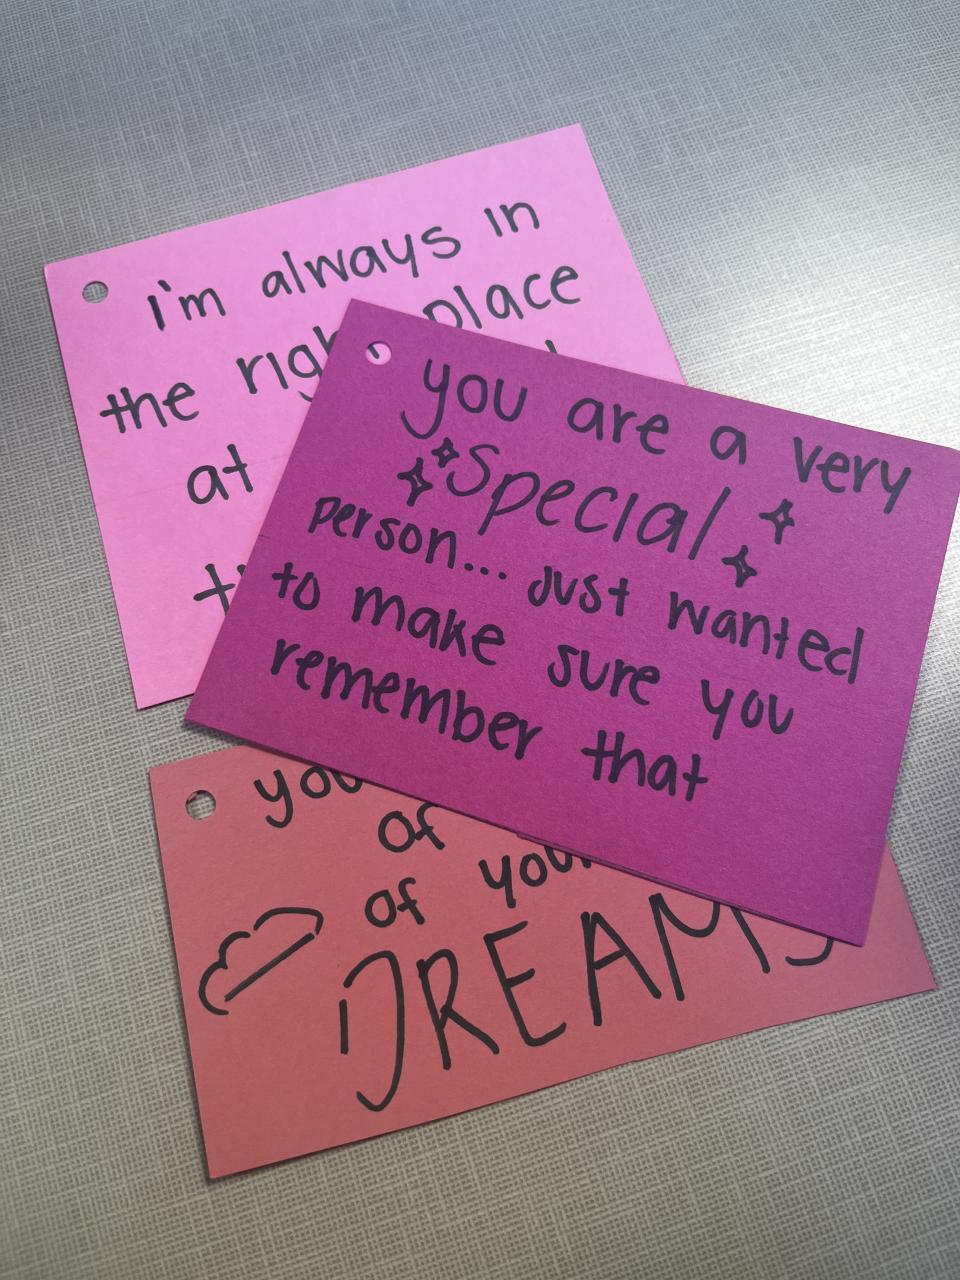 i'm always in
the place
at
you are a very
special
person... just wanted
to make sure you
remember that
of
of
DREAMS